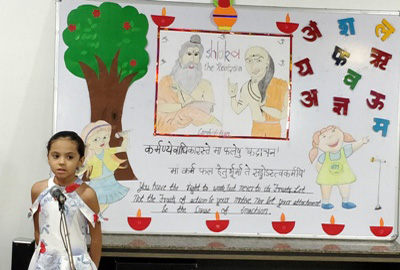 श ल
फ ऋ
व
अ ज्ञ ऊ
म
कर्मण्येवाधिकारस्ते मा फलेषु कदाचन
मा कर्म फल हेतुर्भूर्मा ते सङ्गोऽस्त्वकर्मणि
You have the Right to work, but never to the Fruits. Let
Not the Fruits of action be your motive, Nor let your attachment
be the Cause of inaction.